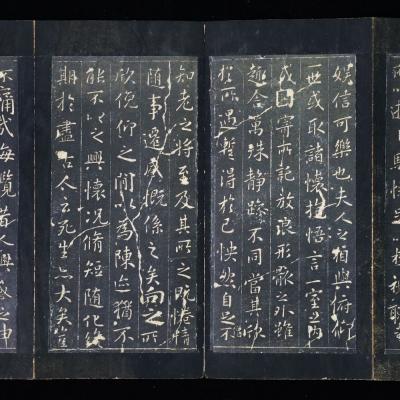 所以遊目騁懷足以極視聽之
娛信可樂也夫人之相與俯仰
一世或取諸懷抱悟言一室之內
或因寄所託放浪形骸之外雖
趣舍萬殊靜躁不同當其欣
於所遇暫得於己怏然自足不
知老之將至及其所之既惓情
隨事遷感慨係之矣向之所
欣俛仰之間以為陳迹猶不
能不以之興懷況脩短隨化終
期於盡古人云死生亦大矣豈
不痛哉每覽昔人興感之由